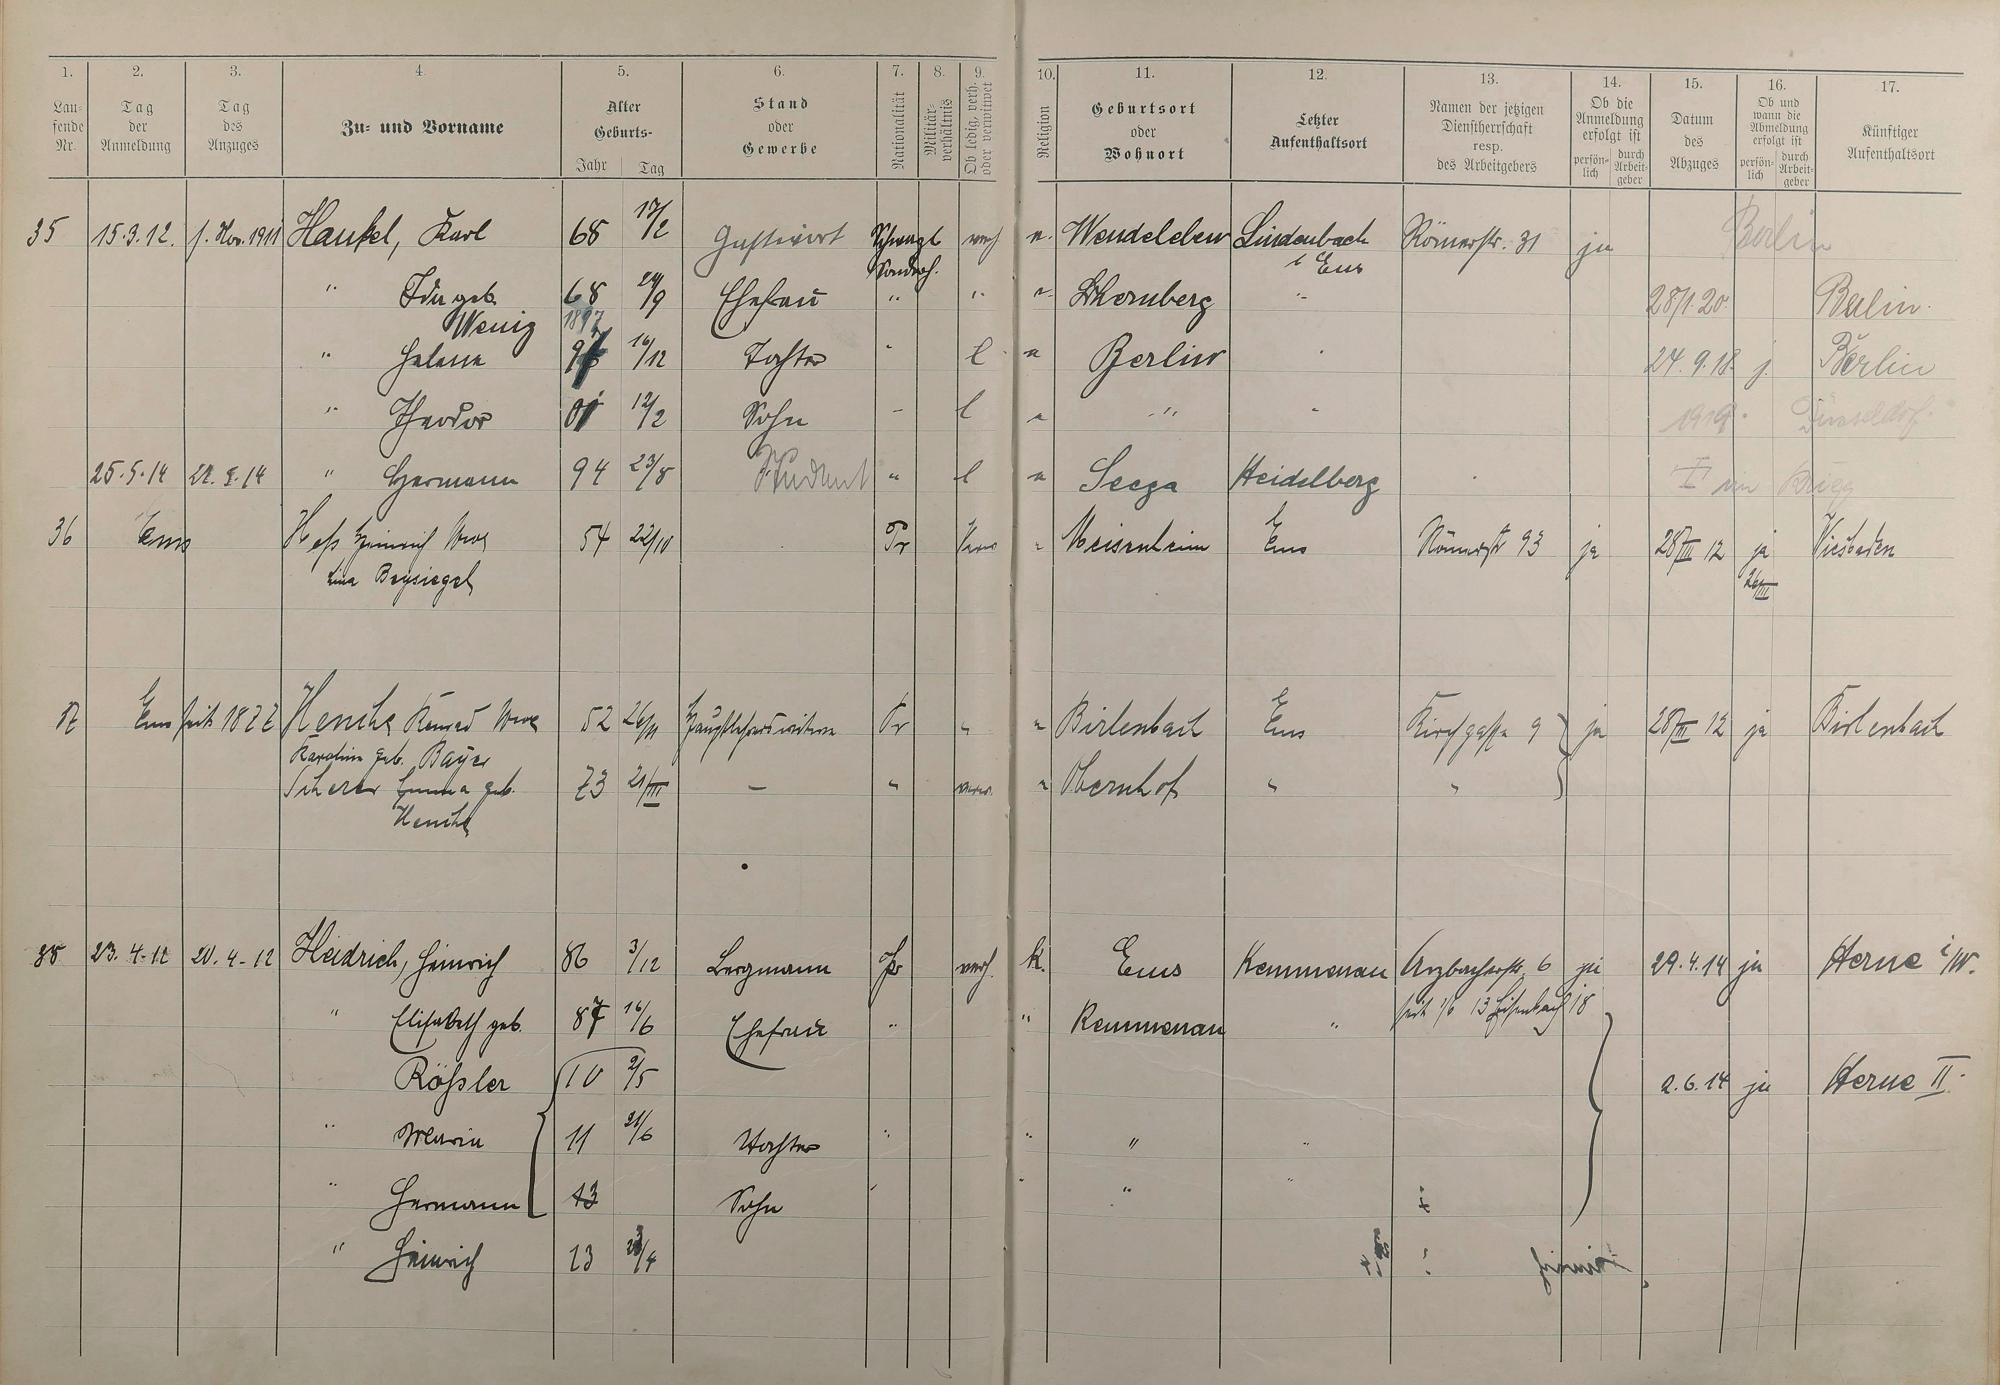 1. 2. 3. 4. 5. 6. 7. 8. 9. 10. 11. 12. 13. 14. 15. 16. 17.
Lau-
fende
Nr.
Tag
der
Anmeldung
Tag
des
Anzuges
Zu- und Vorname
Alter
Geburts-
Jahr Tag
Stand
oder
Gewerbe
Nationalität
Militär-
verhältnis
Ob ledig, verh.
oder verwitwet
Religion
Geburtsort
oder
Wohnort
Letzter
Aufenthaltsort
Namen der jetzigen
Dienstherrschaft
resp.
des Arbeitgebers
Ob die
Anmeldung
erfolgt ist
persön-
lich
durch
Arbeit-
geber
Datum
des
Abzuges
Ob und
wann die
Abmeldung
erfolgt ist
persön-
lich
durch
Arbeit-
geber
Künftiger
Aufenthaltsort
35 15.3.12. 1. Nov. 1911 Karl 68 17/2 Gastwirt verh Lindenbach Römerstr. 31 ja Berlin
b Ems
" Ida geb. 68 29/9 Ehefrau " " " 28/1.20. Berlin.
Wenig 1897
" Helene 16/12 Tochter " l Berlin 24.9.18. j. Berlin
" Theodor 01 12/2 Sohn l " 1919. Düsseldorf.
25.5.14 " Hermann 94 23/8 Student " l Seega Heidelberg im Krieg
36 Ems Heß Heinrich Wwe 54 22/10 Pr Meisenheim Ems Römerstr 93 ja 28/III 12 ja Wiesbaden
Lina Beysiegel 26/III
Ems seit 1877 Henche Konrad Wwe 52 26/11 Hauptlehrerswitwe Pr " " Birlenbach Ems Kirchgasse 9 ja 28/III 12 ja Birlenbach
Karoline geb. Bayer
Scherer Emma geb. 73 21/III — " " Obernhof " "
Henche
38 23.4.12 20.4-12 Heidrich, Heinrich 86 3/12 Bergmann Pr verh. k. Ems Kemmenau Arzbacherstr. 6 ja 29.4.14 ja Herne i/W.
" Elisabeth geb. 87 16/6 Ehefrau " " Kemmenau " seit 1/6 13 18
Rößler 10 2/5 2.6.14 ja Herne II.
" Maria 11 21/6 Tochter " " " "
" Hermann 13 Sohn " " " "
" Heinrich 13 /4